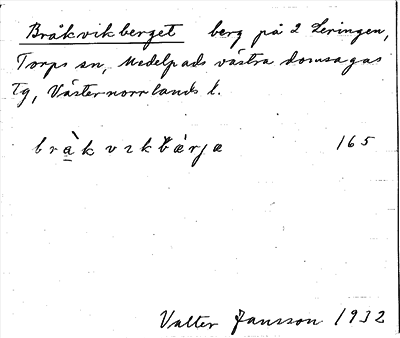 Bråkvikberget berg på 2 Leringen,
Torps sn, Medelpads västra domsagas
Tg, Västernorrlands l.
bràkvɩkbærjæ 165
Valter Jansson 1932